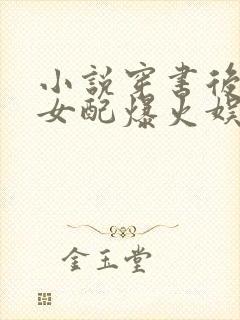 小說穿書後
女配爆火娛
金玉堂